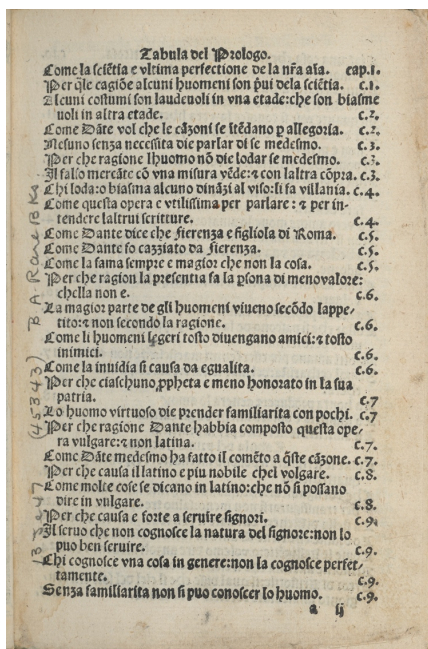 Tabula del Prologo.
Come la sciẽtia e vltima perfectione de la nr̃a aĩa. cap.1.
Per q̃le cagiõe alcuni huomeni son p̃ui dela sciẽtia. c.1.
Alcuni costumi son laudeuoli in vna etade:che son biasme
uoli in altra etade. c.2.
Come Dãte vol che le cãzoni se ĩtẽdano ꝑ allegoria. c.2.
Nesuno senza necessita die parlar di se medesmo. c.3.
Per che ragione lhuomo nõ die lodar se medesmo. c.3.
Il falso mercãte cõ vna misura vẽde:⁊ con laltra cõpra. c.3.
Chi loda:o biasma alcuno dinãzi al viso:li fa villania. c.4.
Come questa opera e vtilissima per parlare : ⁊ per in-
tendere laltrui scritture. c.4.
Come Dante dice che fierenza e figliola di Roma. c.5.
Come Dante fo cazziato da fierenza. c.5.
Come la fama sempre e magior che non la cosa. c.5.
Per che ragion la presentia fa la ꝑsona di menovalore:
chella non e. c.6.
La magior parte de gli huomeni viueno secõdo lappe-
tito:⁊ non secondo la ragione. c.6.
Come li huomeni legeri tosto diuengano amici:⁊ tosto
inimici. c.6.
Come la inuidia si causa da egualita. c.6.
Per che ciaschuno ꝓpheta e meno honorato in la sua
patria. c.7
Lo huomo virtuoso die prender familiarita con pochi. c.7
Per che ragione Dante habbia composto questa ope-
ra vulgare:⁊ non latina. c.7.
Come Dãte medesmo ha fatto il comẽto a q̃ste cãzone. c.7.
Per che causa il latino e piu nobile chel volgare. c.8.
Come molte cose se dicano in latino:che nõ si possano
dire in vulgare. c.8.
Per che causa e forte a seruire signori. c.9.
Il seruo che non cognosce la natura del signore:non lo
puo ben seruire. c.9.
Chi cognosce vna cosa in genere:non la cognosce perfet-
tamente. c.9.
Senza familiarita non si puo conoscer lo huomo. c.9.
a ij
(45343) B A Rare Bks